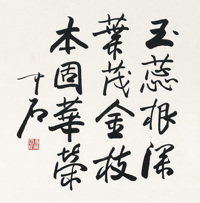 玉蕊根深
葉茂金枝
本固華榮